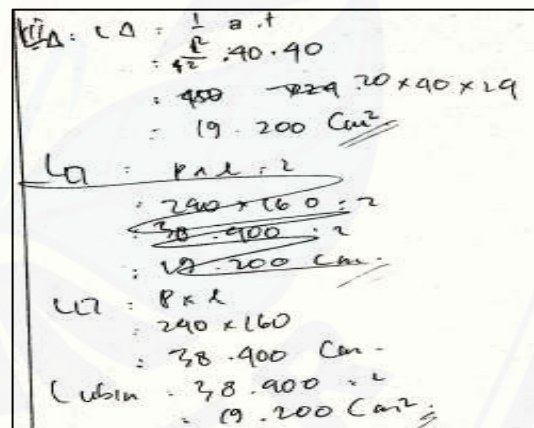 L△ : L △ = 1/2 a . t
: 1/2 . 40 . 40
: 20 x 40 x 24
= 19 . 200 Cm²
L▭ : P x l : 2
: 240 x 160 : 2
: 38 . 400 : 2
: 19 . 200 Cm.
L▭ : P x l
: 240 x 160
: 38 . 400 Cm.
L ubin : 38 . 400 : 2
: 19 . 200 Cm²